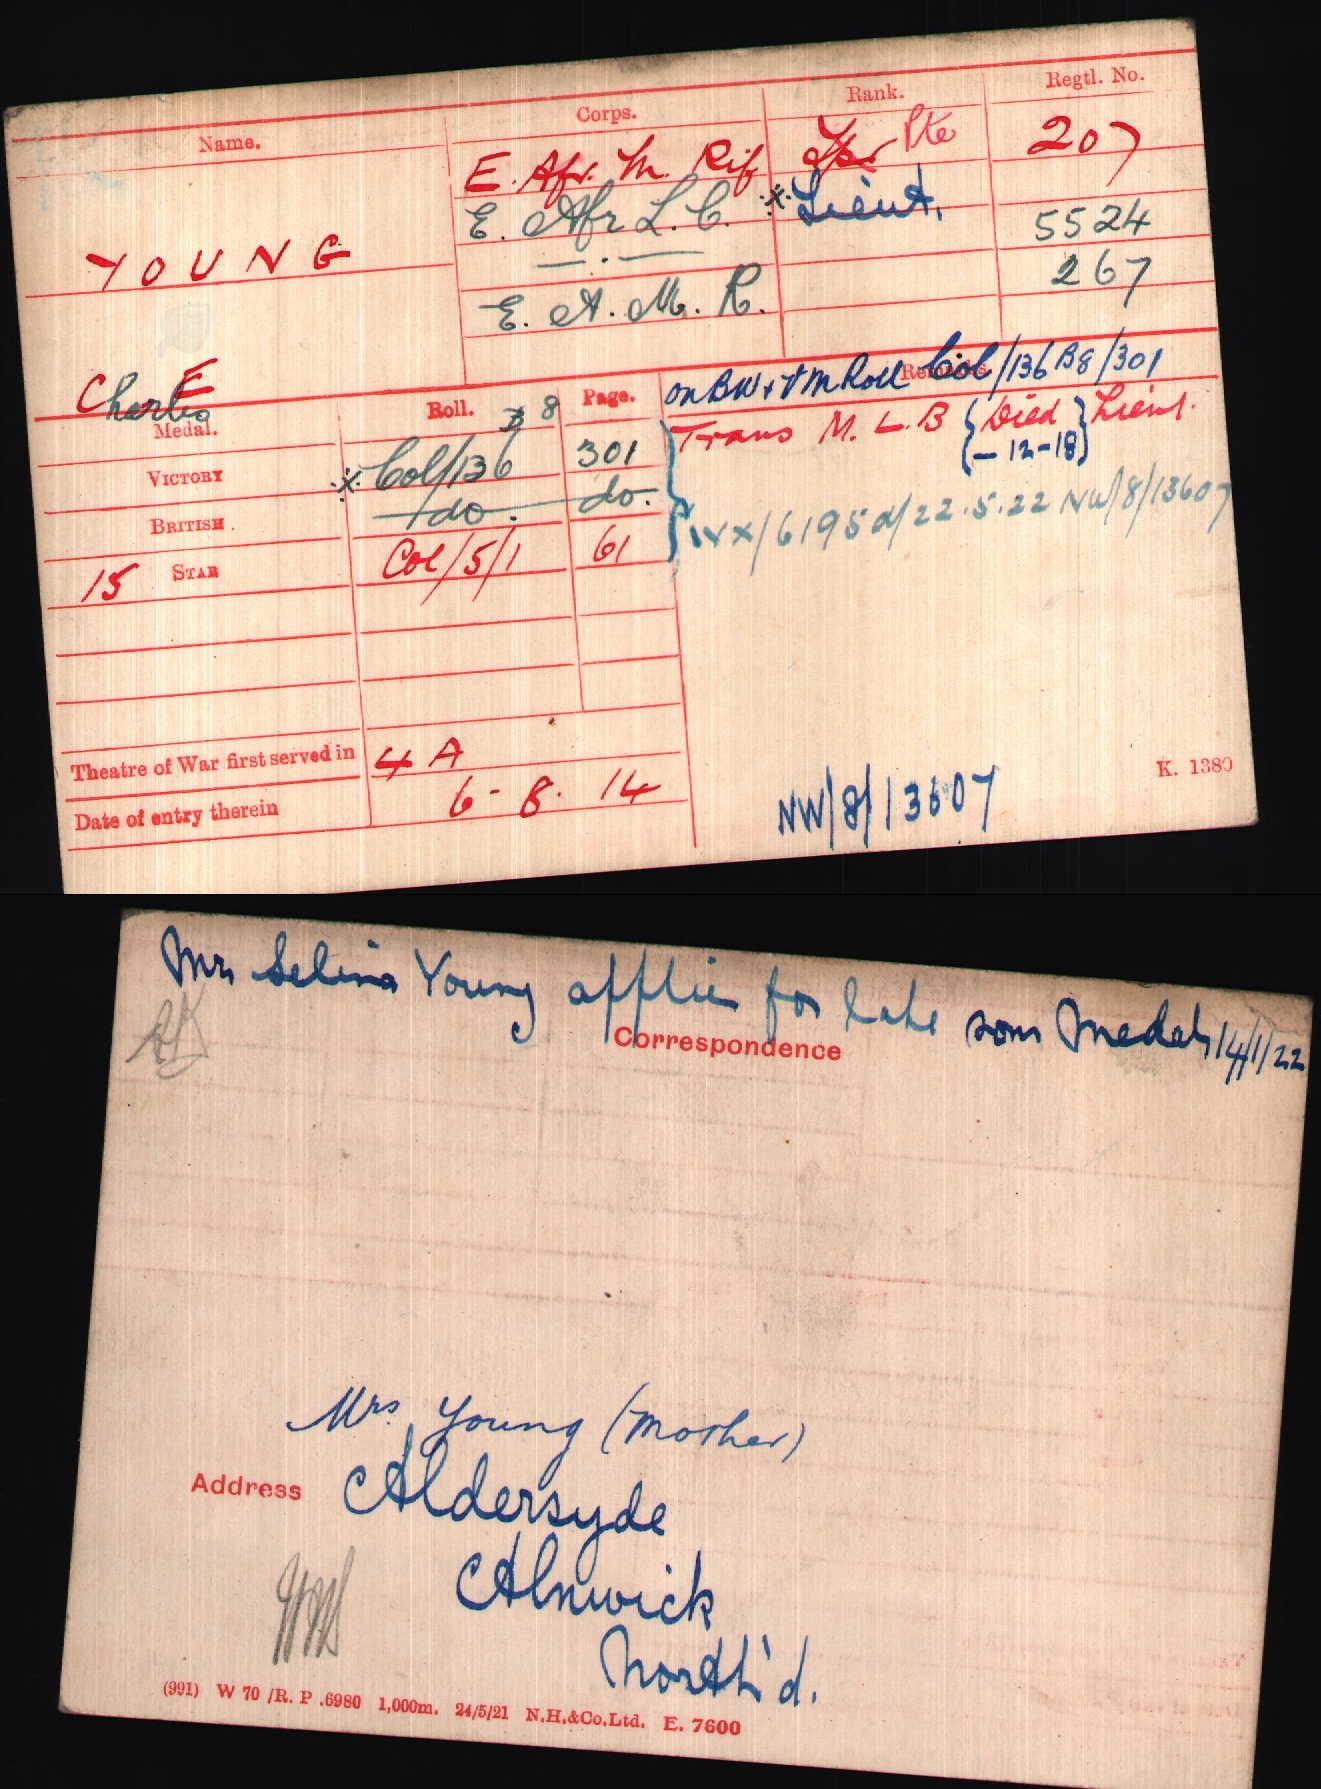 Name. Corps. Rank. Regtl. No.
E. Afr. M. Rif Pte 207
E. Afr L. C. x Lieut. 5524
YOUNG 267
E. A. M. R.
Charles E
Remarks.
on BW & VM Roll Col/136 B8/301
Medal. Roll. Page.
Trans M. L. B {Died — 12-18} Lieut.
B 8
VICTORY x Col/136 301
BRITISH. do. do.
IVX/6195 d/22.5.22 NW/8/13607
15 STAR Col/5/1 61
Theatre of War first served in 4 A
Date of entry therein 6 - 8. 14
K. 1380
NW/8/13607
Mrs Selina Young applies for late sons Medals 14/1/22
Correspondence
Mrs Young (Mother)
Address Aldersyde
Alnwick
North'd.
(991) W 70 /R. P .6980 1,000m. 24/5/21 N.H.&Co.Ltd. E. 7600